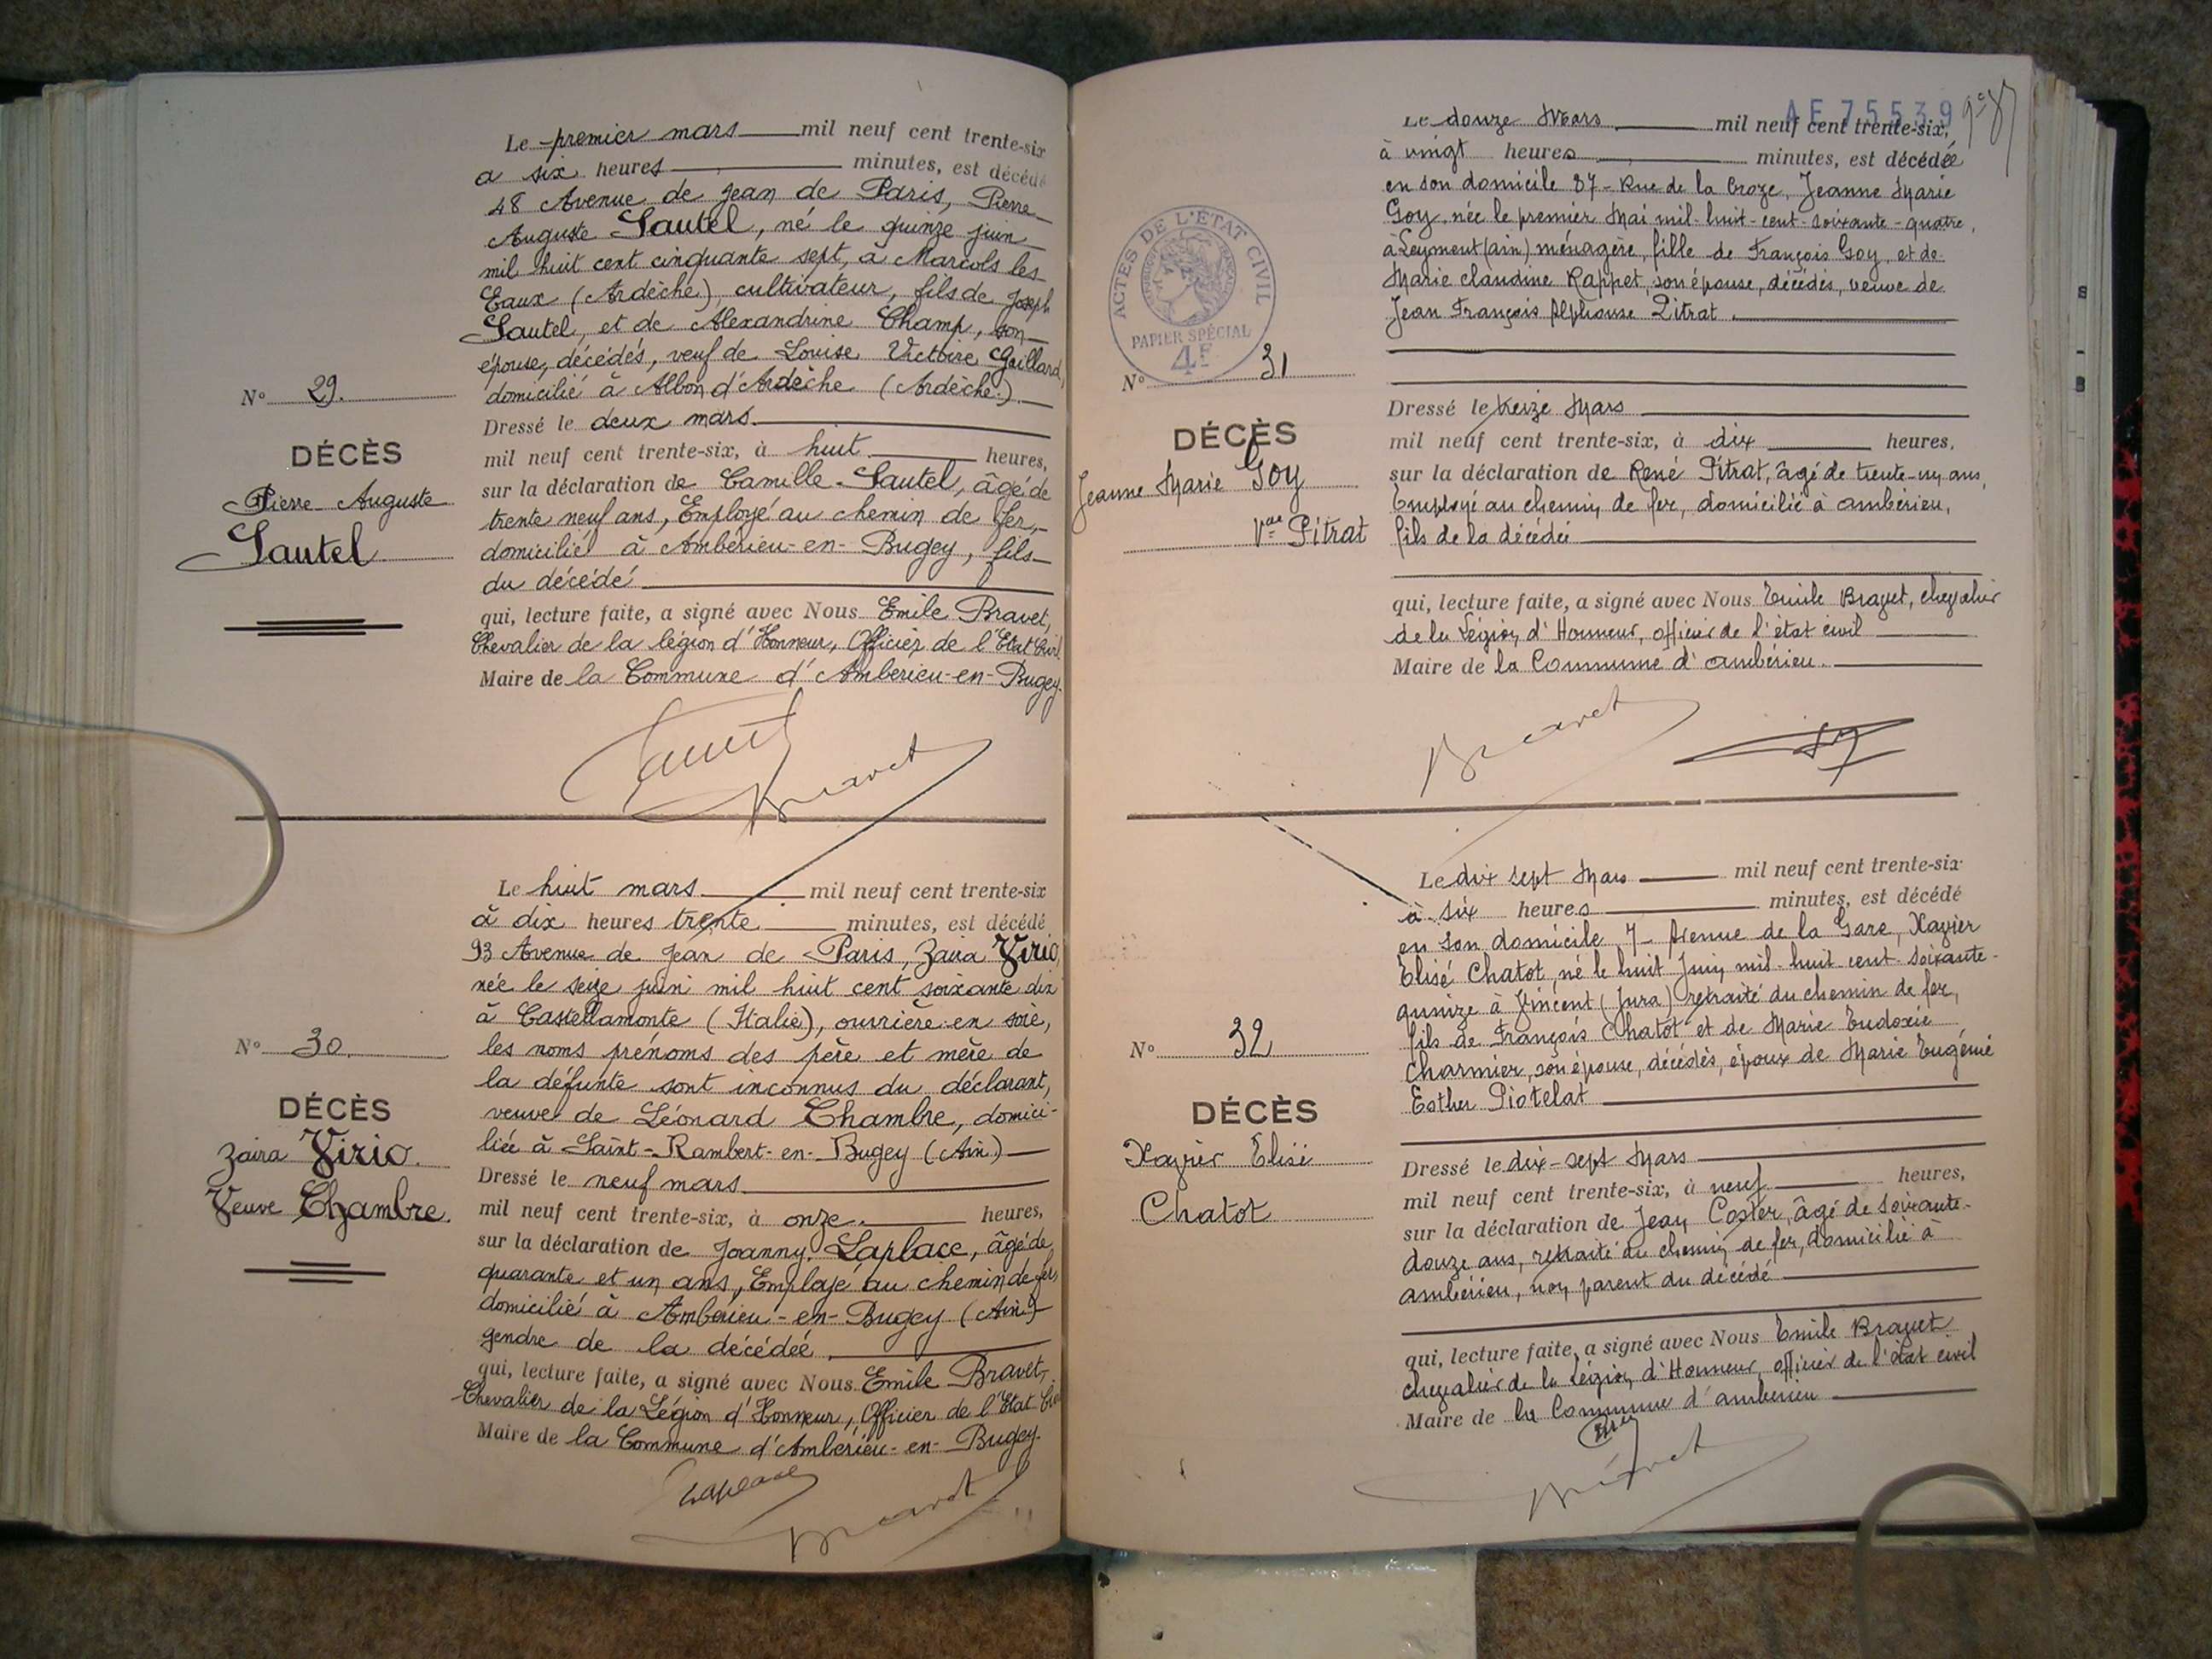 Le premier mars mil neuf cent trente-six
a six heures minutes, est décédé
48 Avenue de Jean de Paris, Pierre
Auguste Sautel, né le quinze juin
mil huit cent cinquante sept, à Marcols les
Eaux (Ardèche) cultivateur, fils de Joseph
Sautel, et de Alexandrine Champ, son
épouse, décédés, veuf de Louise Victoire Gaillard,
domicilié à Albon d'Ardèche (Ardèche).
Dressé le deux mars.
mil neuf cent trente-six, à huit heures,
sur la déclaration de Camille Sautel, âgé de
trente neuf ans, Employé au chemin de fer,
domicilié à Ambérieu-en-Bugey, fils
du décédé
qui, lecture faite, a signé avec Nous Emile Bravet,
Chevalier de la légion d'Honneur, Officier de l'Etat Civil
Maire de la Commune d'Ambérieu-en-Bugey.
N° 29.
DÉCÈS
Pierre Auguste
Sautel
Sautel
Bravet
Le huit mars mil neuf cent trente-six
à dix heures trente minutes, est décédé
93 Avenue de Jean de Paris, Zaïra Virio,
née le seize juin mil huit cent soixante dix
à Castellamonte (Italie), ouvrière en soie,
les noms prénoms des père et mère de
la défunte sont inconnus du déclarant,
veuve de Léonard Chambre, domici-
liée à Saint-Rambert-en-Bugey (Ain)
Dressé le neuf mars.
mil neuf cent trente-six, à onze heures,
sur la déclaration de Joanny Laplace, âgé de
quarante et un ans, Employé au chemin de fer,
domicilié à Ambérieu-en-Bugey (Ain)
gendre de la décédée
qui, lecture faite, a signé avec Nous Emile Bravet,
Chevalier de la Légion d'Honneur, Officier de l'Etat Civil
Maire de la Commune d'Ambérieu-en-Bugey.
N° 30.
DÉCÈS
Zaïra Virio.
Veuve Chambre.
Laplace
Bravet
AE 75539
Le douze Mars mil neuf cent trente-six,
à vingt heures minutes, est décédée
en son domicile 87 - Rue de la Croze, Jeanne Marie
Goy, née le premier Mai mil-huit-cent-soixante-quatre,
à Leyment (ain) ménagère, fille de François Goy, et de
Marie Claudine Rappet, son épouse, décédés, veuve de
Jean François Alphonse Pitrat.
Dressé le treize Mars
mil neuf cent trente-six, à dix heures,
sur la déclaration de René Pitrat, âgé de trente-un ans,
Employé au chemin de fer, domicilié à ambérieu,
fils de la décédée
qui, lecture faite, a signé avec Nous Emile Bravet, chevalier
de la Légion d'Honneur, officier de l'état civil
Maire de la Commune d'ambérieu.
ACTES DE L'ÉTAT CIVIL
PAPIER SPÉCIAL
4F
N° 31
DÉCÈS
Jeanne Marie Goy
Vve Pitrat
Bravet
Le dix sept Mars mil neuf cent trente-six
à six heures minutes, est décédé
en son domicile, 7 - Avenue de la Gare, Xavier
Elisé Chatot, né le huit Juin mil-huit-cent-soixante-
quinze à Vincent (Jura) retraité du chemin de fer,
fils de François Chatot et de Marie Eudoxie
Charmier, son épouse, décédés, époux de Marie Eugénie
Esther Piotelat
Dressé le dix-sept Mars
mil neuf cent trente-six, à neuf heures,
sur la déclaration de Jean Coster, âgé de soixante-
douze ans, retraité du chemin de fer, domicilié à
ambérieu, non parent du décédé
qui, lecture faite, a signé avec Nous Emile Bravet
chevalier de la Légion d'Honneur, officier de l'état civil
Maire de la Commune d'ambérieu
N° 32
DÉCÈS
Xavier Elisé
Chatot
Bravet